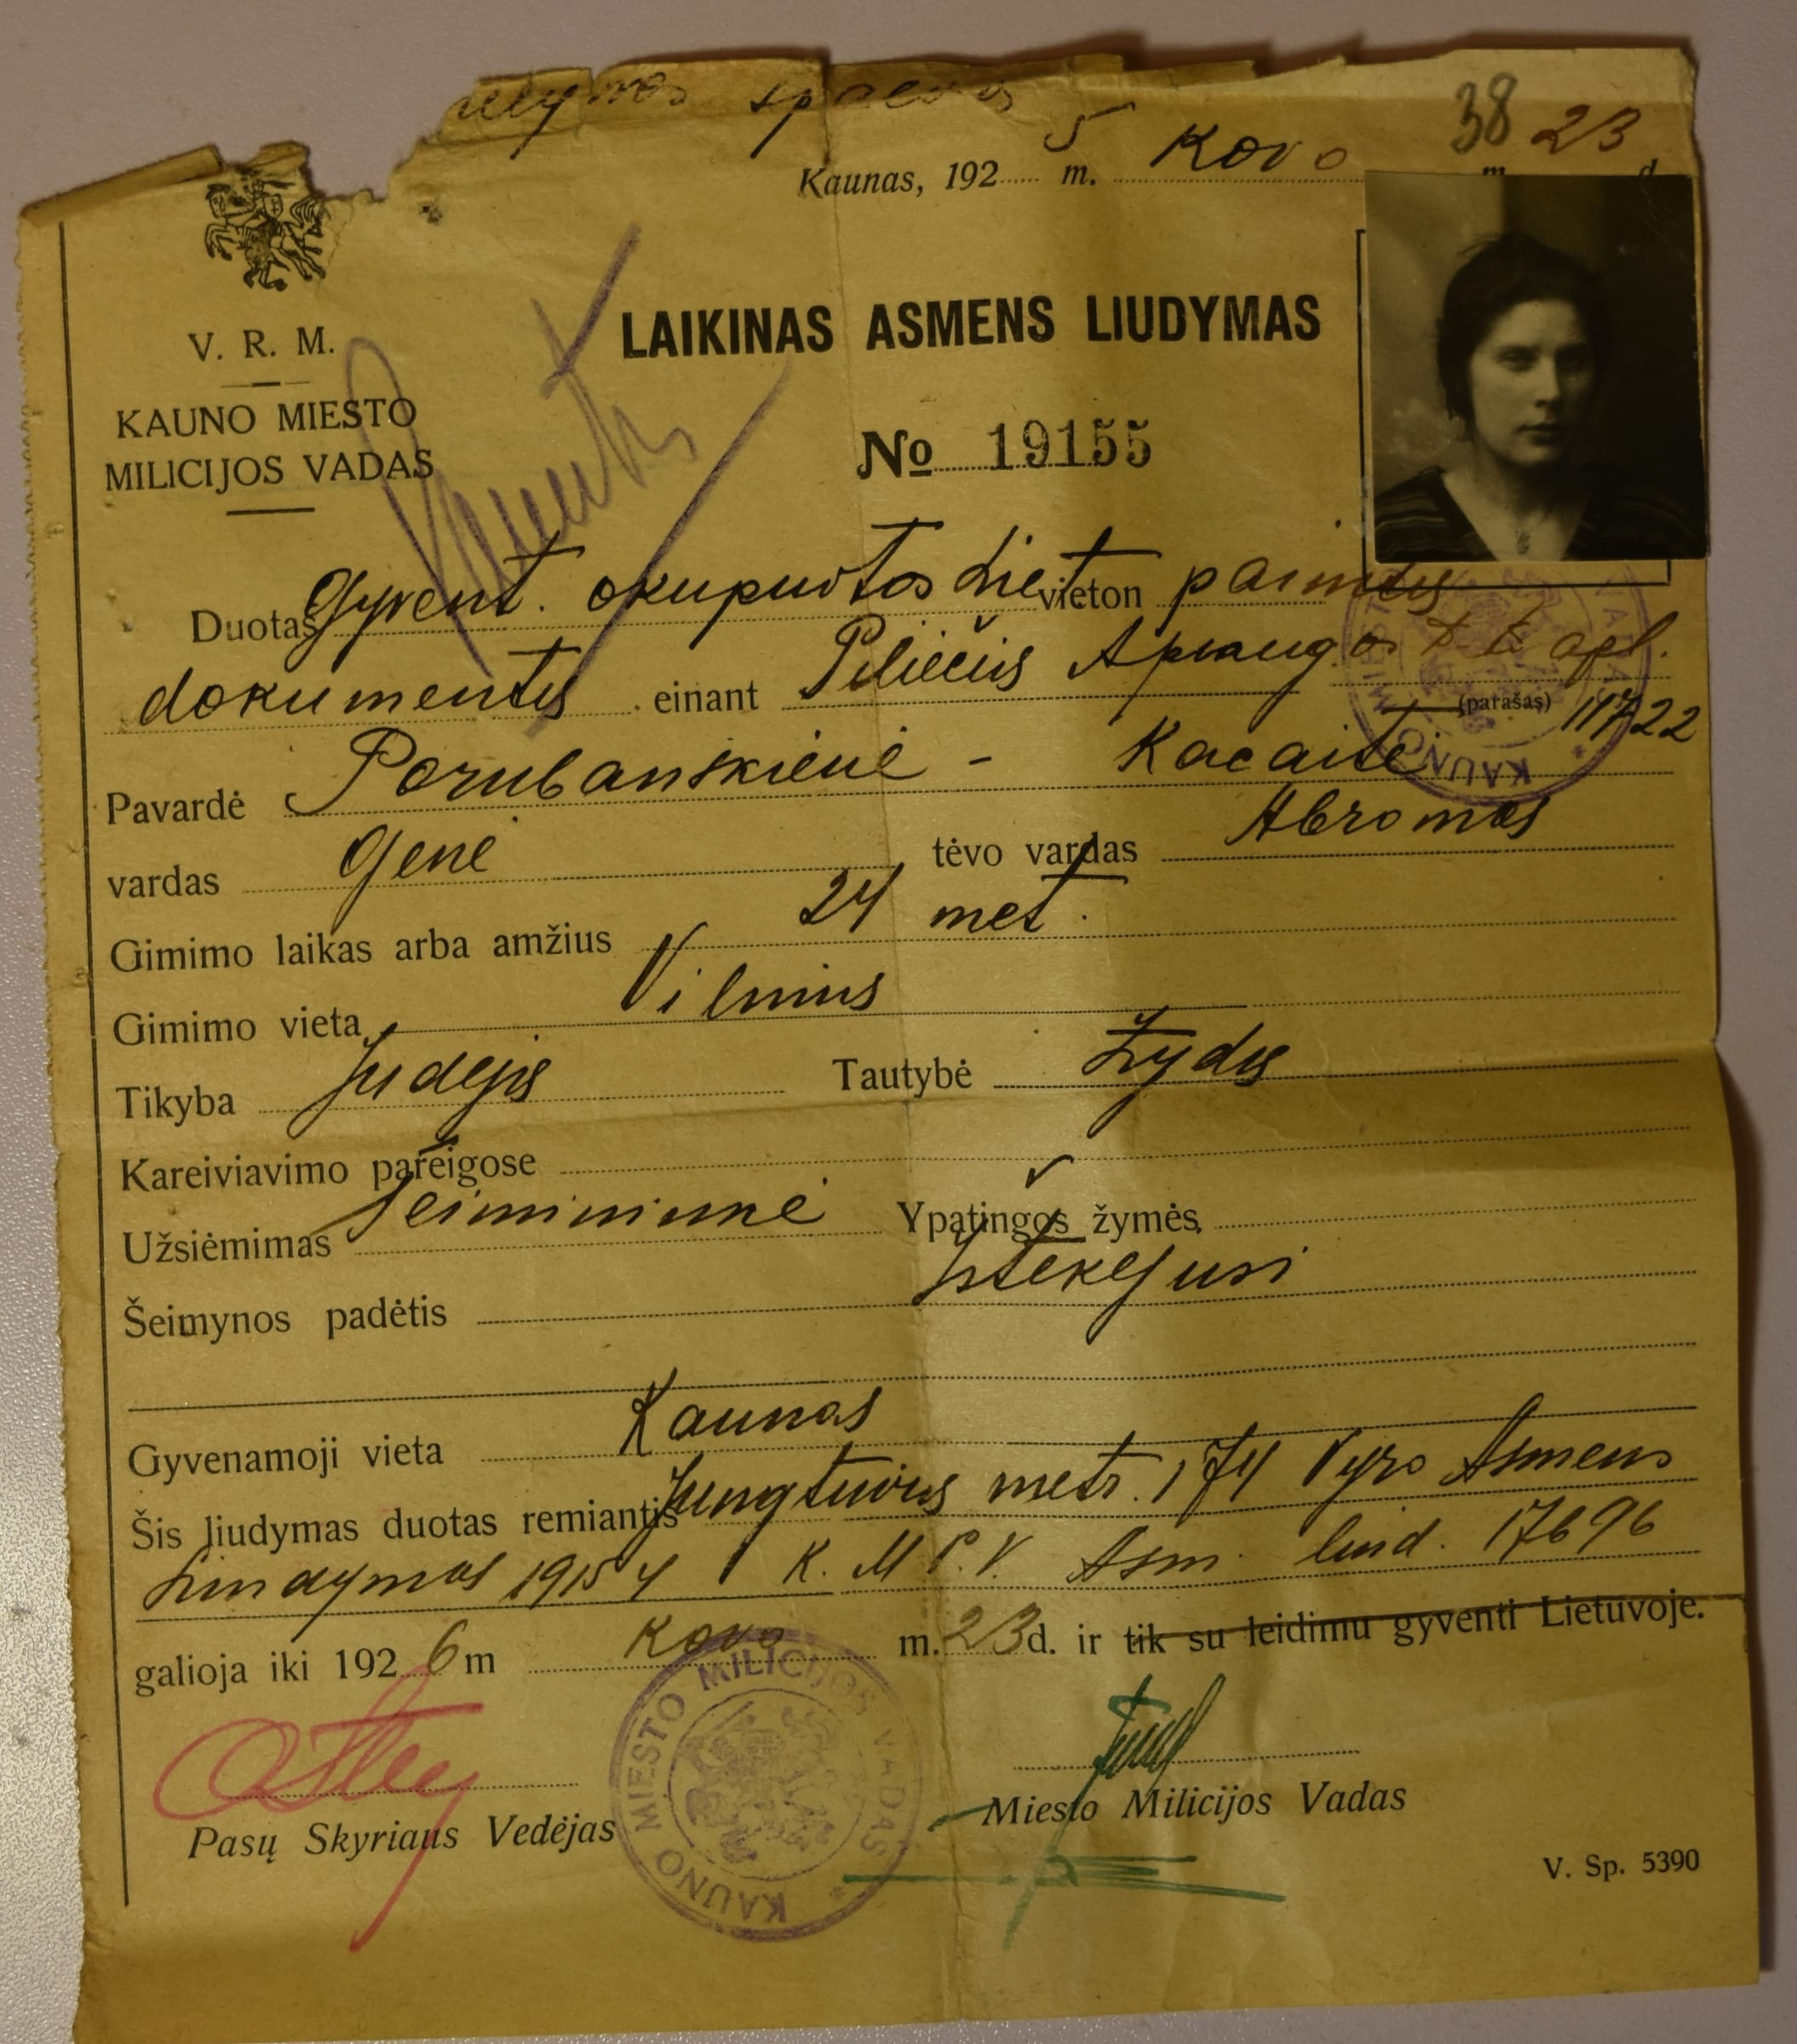 38
Kaunas, 1925 m. Kovo m. 23 d.
V. R. M.
KAUNO MIESTO
MILICIJOS VADAS
LAIKINAS ASMENS LIUDYMAS
No 19155
Duotas Gyvent. okupuotos Liet. vieton paimtus
dokumentus einant Piliečių Apsaugos D-to apl.
(parašas) 11722
Pavardė Porubanskienė - Kacaitė
vardas Genė tėvo vardas Abromas
Gimimo laikas arba amžius 24 met.
Gimimo vieta Vilnius
Tikyba Judėjų Tautybė Žydų
Kareiviavimo pareigose
Užsiėmimas šeimininkė Ypatingos žymės
Šeimynos padėtis Ištekėjusi
Gyvenamoji vieta Kaunas
Šis liudymas duotas remiantis Jungtuvių metr. 174 Vyro Asmens
Liudymas K. M. P. V. Asm. liud. 17696
galioja iki 1926 m Kovo m. 23 d. ir tik su leidimu gyventi Lietuvoje.
Pasų Skyriaus Vedėjas
Miesto Milicijos Vadas
KAUNO MIESTO MILICIJOS VADAS
V. Sp. 5390